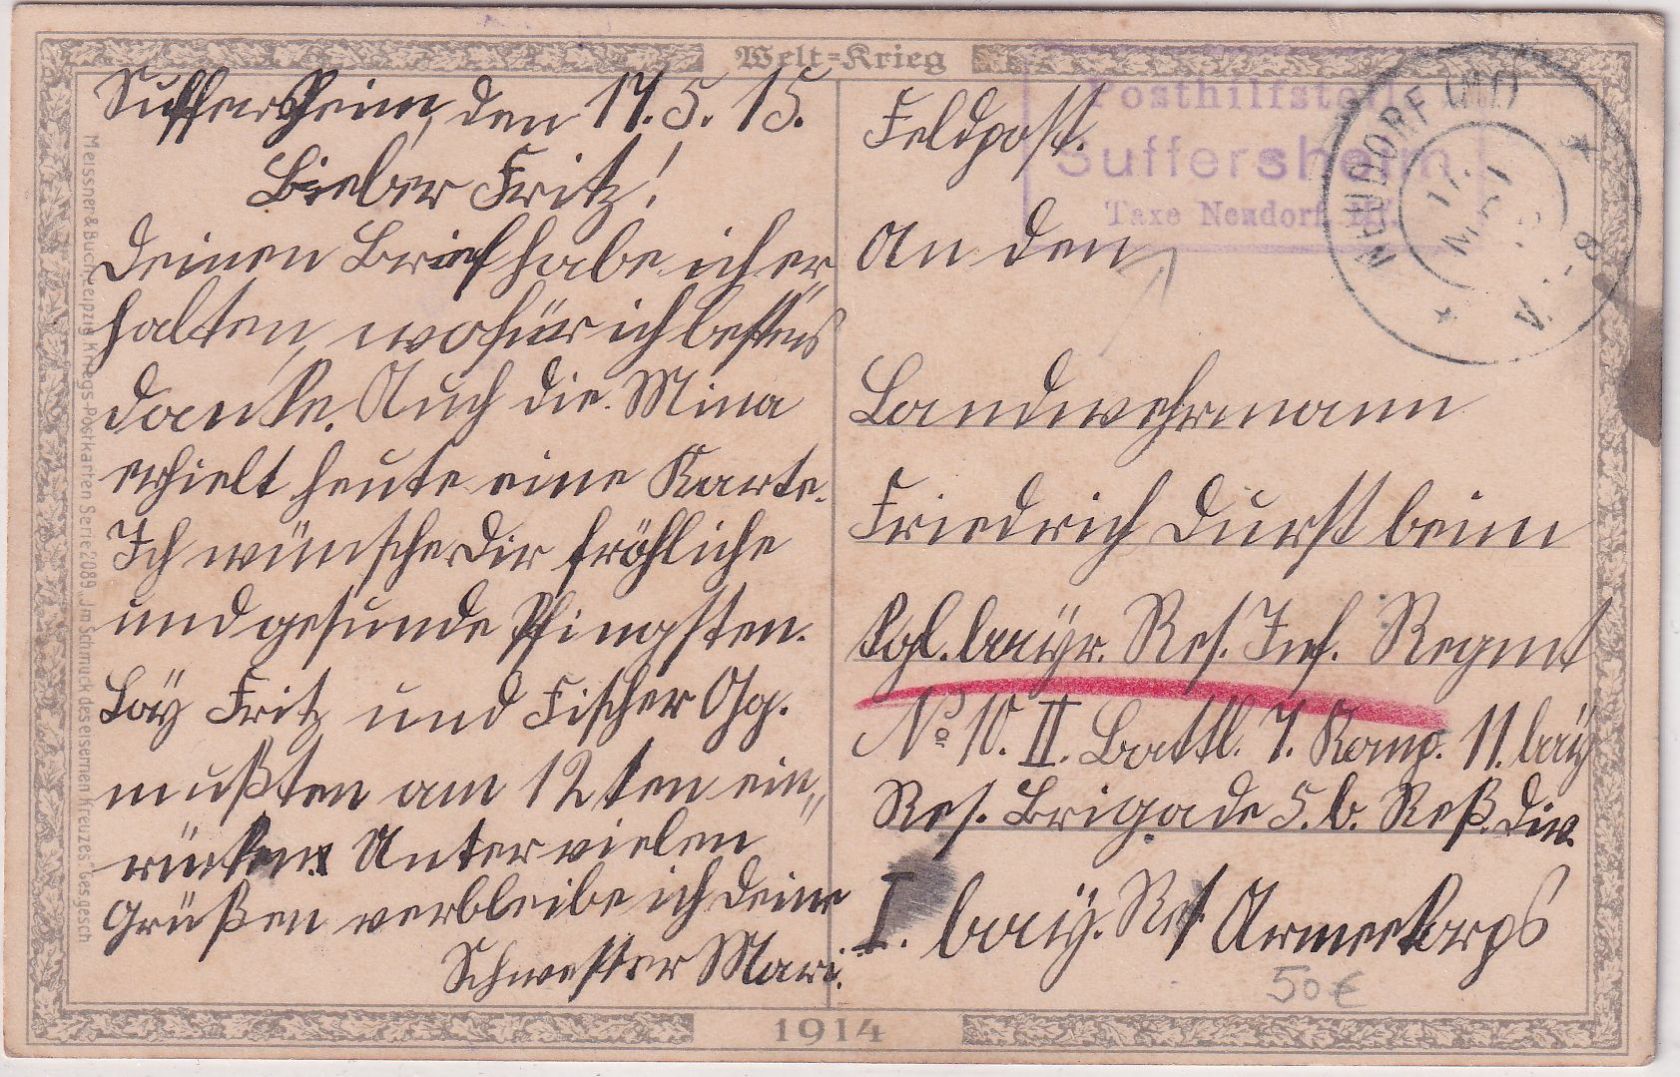 Welt-Krieg
Suffersheim, den 17. 5. 15.
Lieber Fritz!
Deinen Brief habe ich er„
halten, wofür ich bestens
danke. Auch die Mina
erhielt heute eine Karte.
Ich wünsche Dir fröhliche
und gesunde Pfingsten.
Loy Fritz und Fischer Gg.
mußten am 12ten ein„
rücken. Unter vielen
Grüßen verbleibe ich Deine
Schwester Mari.
Meissner & Buch, Leipzig Kriegs-Postkarten Serie 2089 „Im Schmuck des eisernen Kreuzes" Ges. gesch.
Posthilfstelle
Suffersheim
Taxe Neudorf
NEUDORF
17.
MAI
V. 8-
Feldpost.
An den
Landwehrmann
Friedrich Durst beim
Kgl. bayr. Res. Inf. Regmt
No 10. II. Battl. 7. Komp. 11. bay
Res. Brigade 5. b. Reß. Div.
I. bay. Res. Armeekorps
50€
1914